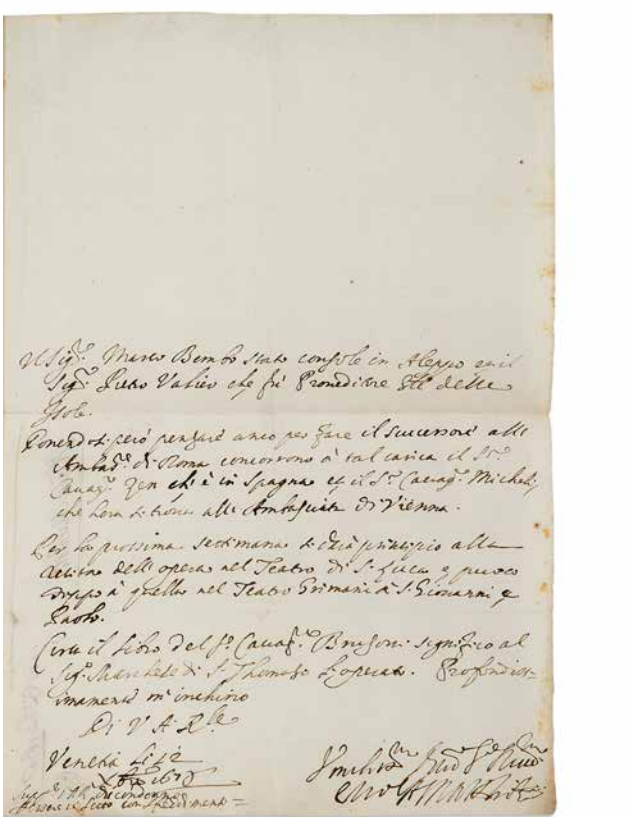 Il Sig.r Marco Bembo stato console in Aleppo et il
Sig.r Pietro Valier che fù Proveditore Gle delle
Isole.
Dovendosi però pensare anco per fare il successore alle
Ambas.ta di Roma concorrono à tal carica il Sr.
Cavag.r Zen ch'è in Spagna et il Sr. Cavag.r Micheli,
che hora si trova alla Ambasciata di Vienna.
Per la prossima settimana si darà principio alla
recita dell'opera nel Teatro di S. Luca e puoco
doppo à quello nel Teatro Grimani à S. Giovanni e
Paolo.
Circa il libro del Sr. Cavag.r Brusoni significo al
Sig.r Marchese di S. Thomaso l'operato. Profondiss-
imamente m'inchino
Di V. A. R.le
Venetia li 12
1678